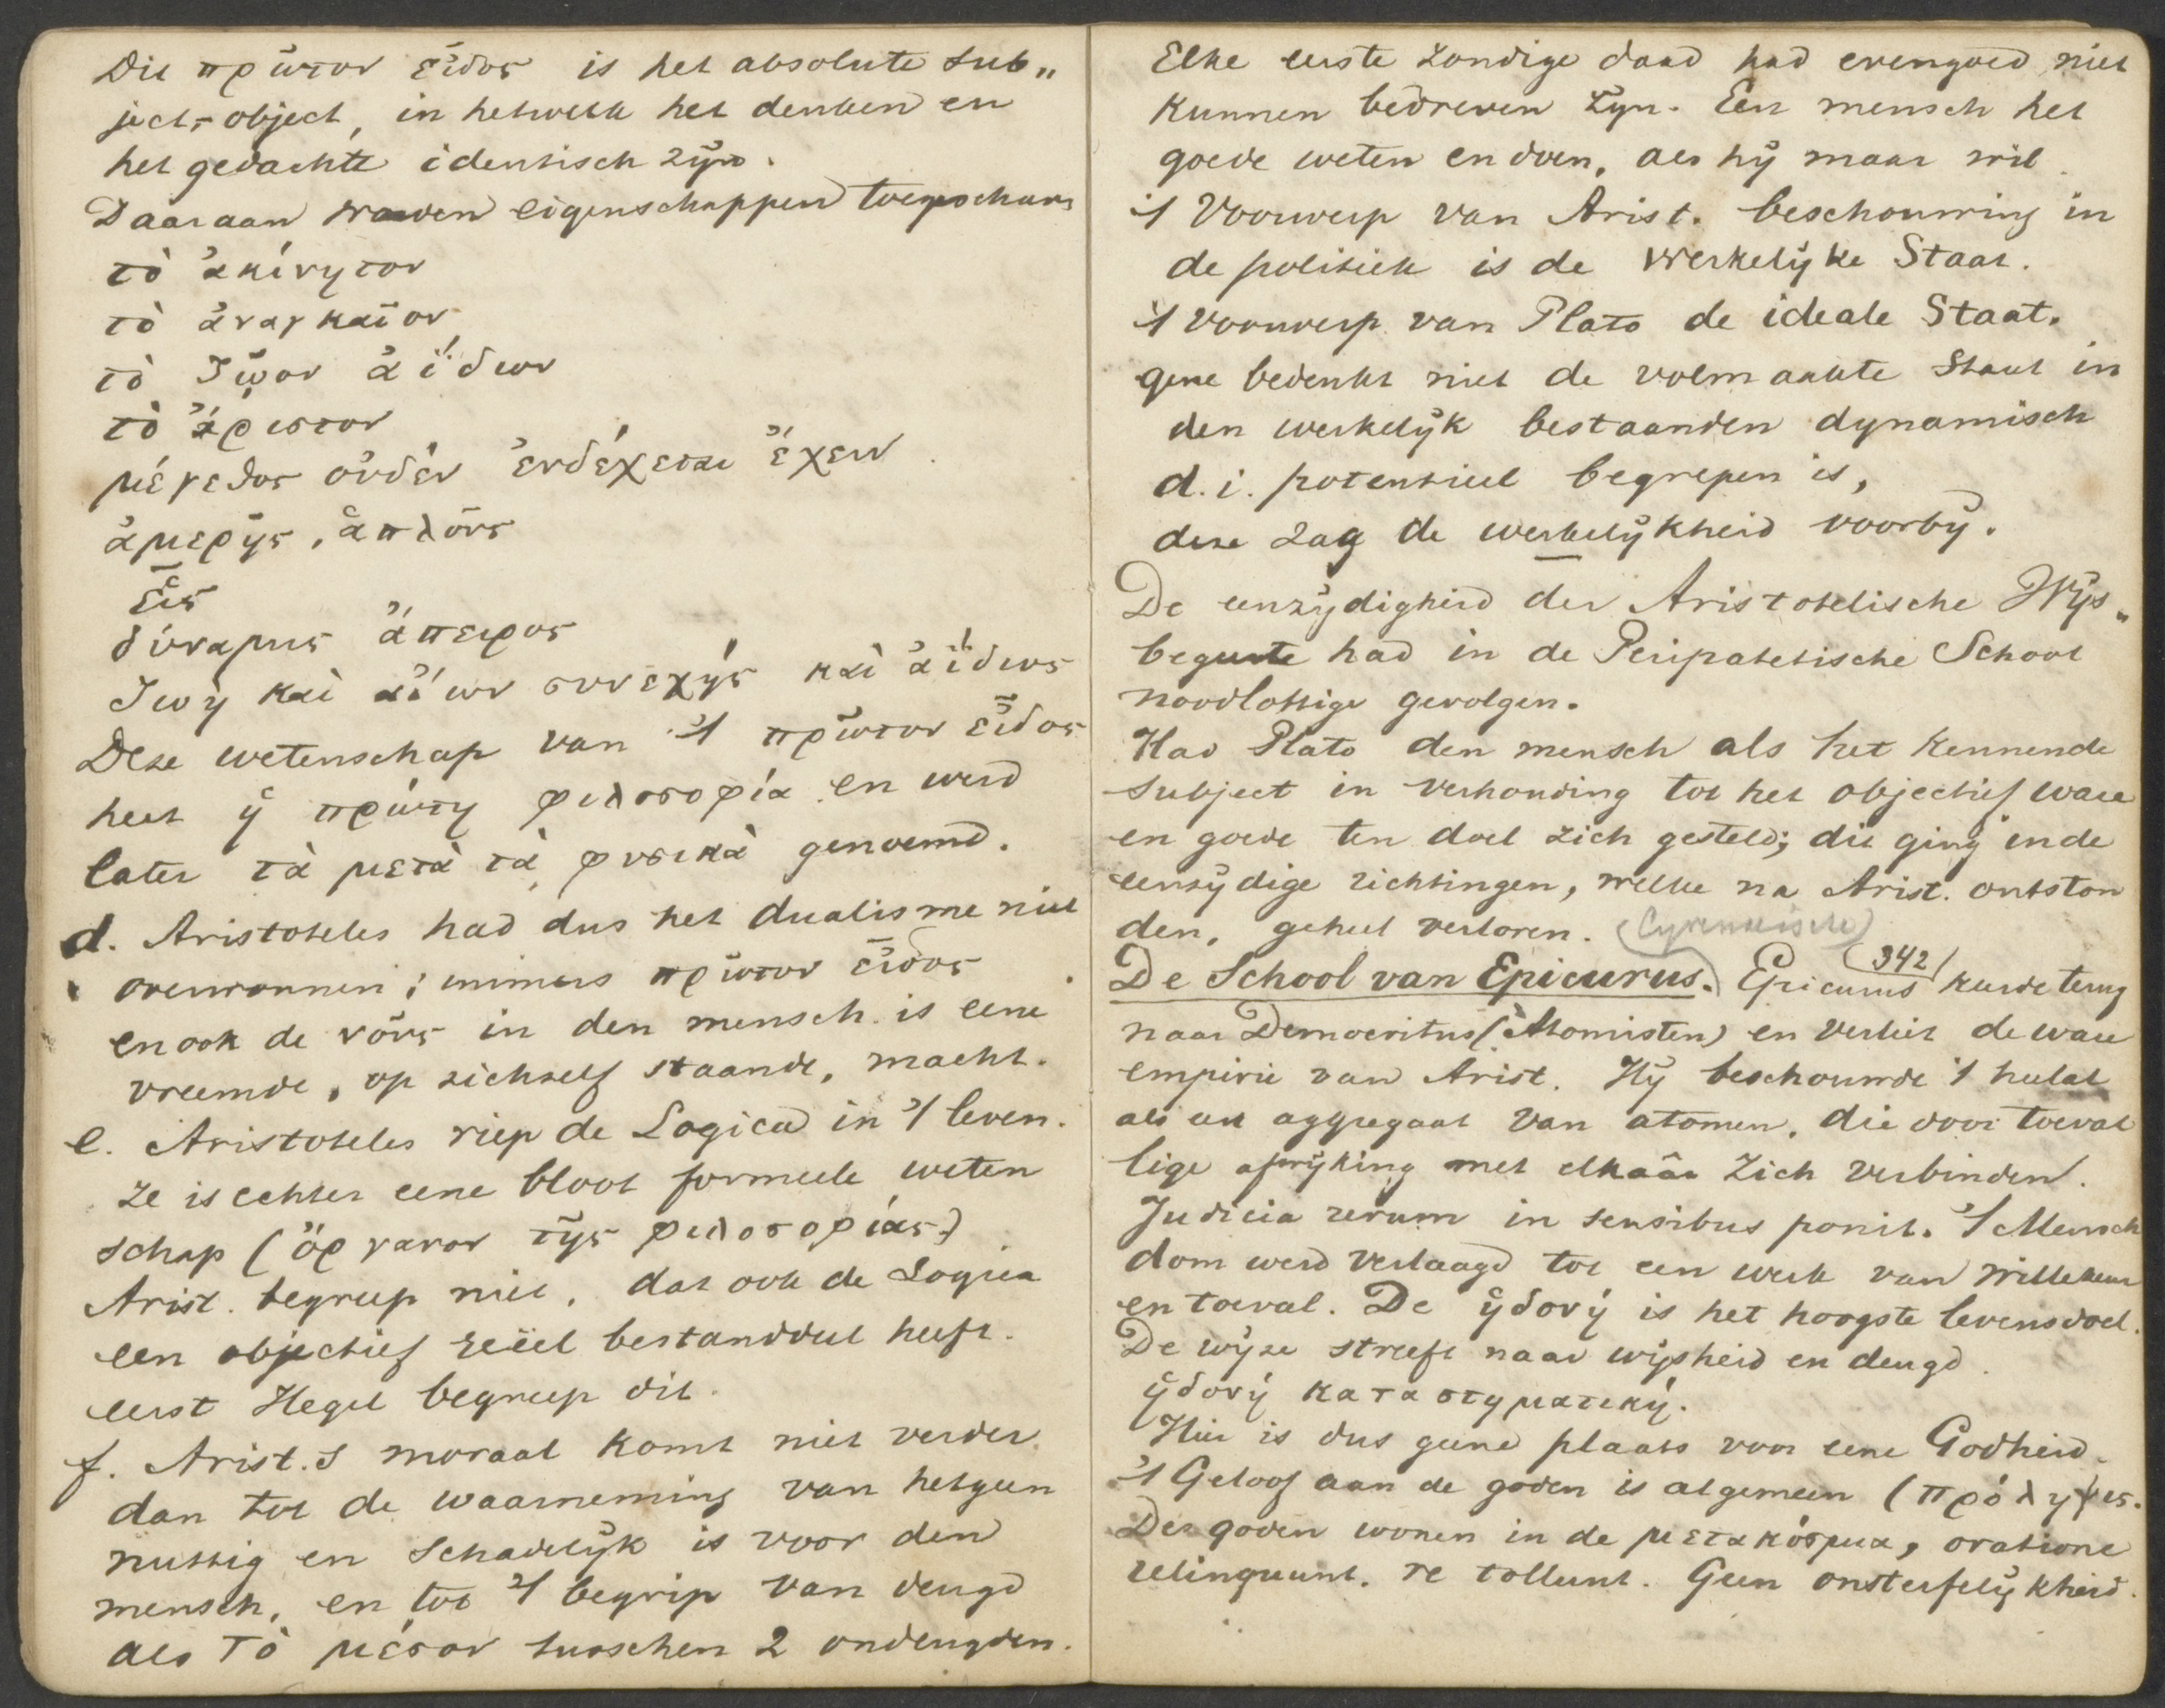 Dit πρῶτον εἶδος is het absolute sub„
ject-object, in hetwelk het denken en
het gedachte identisch zijn.
Daaraan worden eigenschappen toegeschrev
τὸ ἀκίνητον
τὸ ἀναγκαῖον
τὸ ζῷον ἀΐδιον
τὸ ἄριστον
μέγεθος οὐδὲν ἐνδέχεται ἔχειν.
ἀμερῆς, ἁπλοῦς
εἷς
δύναμις ἄπειρος
ζωὴ καὶ αἰών συνεχὴς καὶ ἀΐδιος
Deze wetenschap van 't πρῶτον εἶδος
heet ἡ πρώτη φιλοσοφία en werd
later τὰ μετὰ τὰ φυσικὰ genoemd.
d. Aristoteles had dus het dualisme niet
overwonnen; immers πρῶτον εἶδος
en ook de νοῦς in den mensch is eene
vreemde, op zichzelf staande, macht.
e. Aristoteles riep de Logica in 't leven.
Ze is echter eene bloot formeele weten
schap (ὄργανον τῆς φιλοσοφίας)
Arist. begreep niet, dat ook de Logica
een objectief reëel bestanddeel heeft.
eerst Hegel begreep dit.
f. Arist.s moraal komt niet verder
dan tot de waarneming van hetgeen
nuttig en schadelijk is voor den
mensch, en tot 't begrip van deugd
als τὸ μέσον tusschen 2 ondeugden.
Elke eerste zondige daad had evengoed niet
kunnen bedreven zijn. Een mensch het
goede weten en doen, als hij maar wil.
't Voorwerp van Arist. beschouwing in
de politiek is de werkelijke Staat.
't voorwerp van Plato de ideale Staat.
gene bedenkt niet de volmaakte Staat in
den werkelijk bestaanden dynamisch
d.i. potentieel begrepen is,
deze zag de werkelijkheid voorbij.
De eenzijdigheid der Aristotelische Wijs„
begeerte had in de Peripatetische School
noodlottige gevolgen.
Had Plato den mensch als het kennende
subject in verhouding tot het objectief ware
en goede ten doel zich gesteld; die ging in de
eenzijdige richtingen, welke na Arist. ontston
den, geheel verloren. (Cyrenaische)
De School van Epicurus. Epicurus (342) keerde terug
naar Democritus (Atomisten) en verliet de ware
empirie van Arist. Hij beschouwde 't heelal
als een aggregaat van atomen, die door toeval
lige afwijking met elkaâr zich verbinden.
Judicia rerum in sensibus ponit. 't Mensch
dom werd verlaagd tot een werk van willekeur
en toeval. De ἡδονή is het hoogste levensdoel.
De wijze streeft naar wijsheid en deugd.
ἡδονή καταστηματική.
Hier is dus geene plaats voor eene Godheid.
't Geloof aan de goden is algemeen (πρόληψις.
Der goden wonen in de μετακόσμια, oratione
relinquunt, re tollunt. Geen onsterfelijkheid.